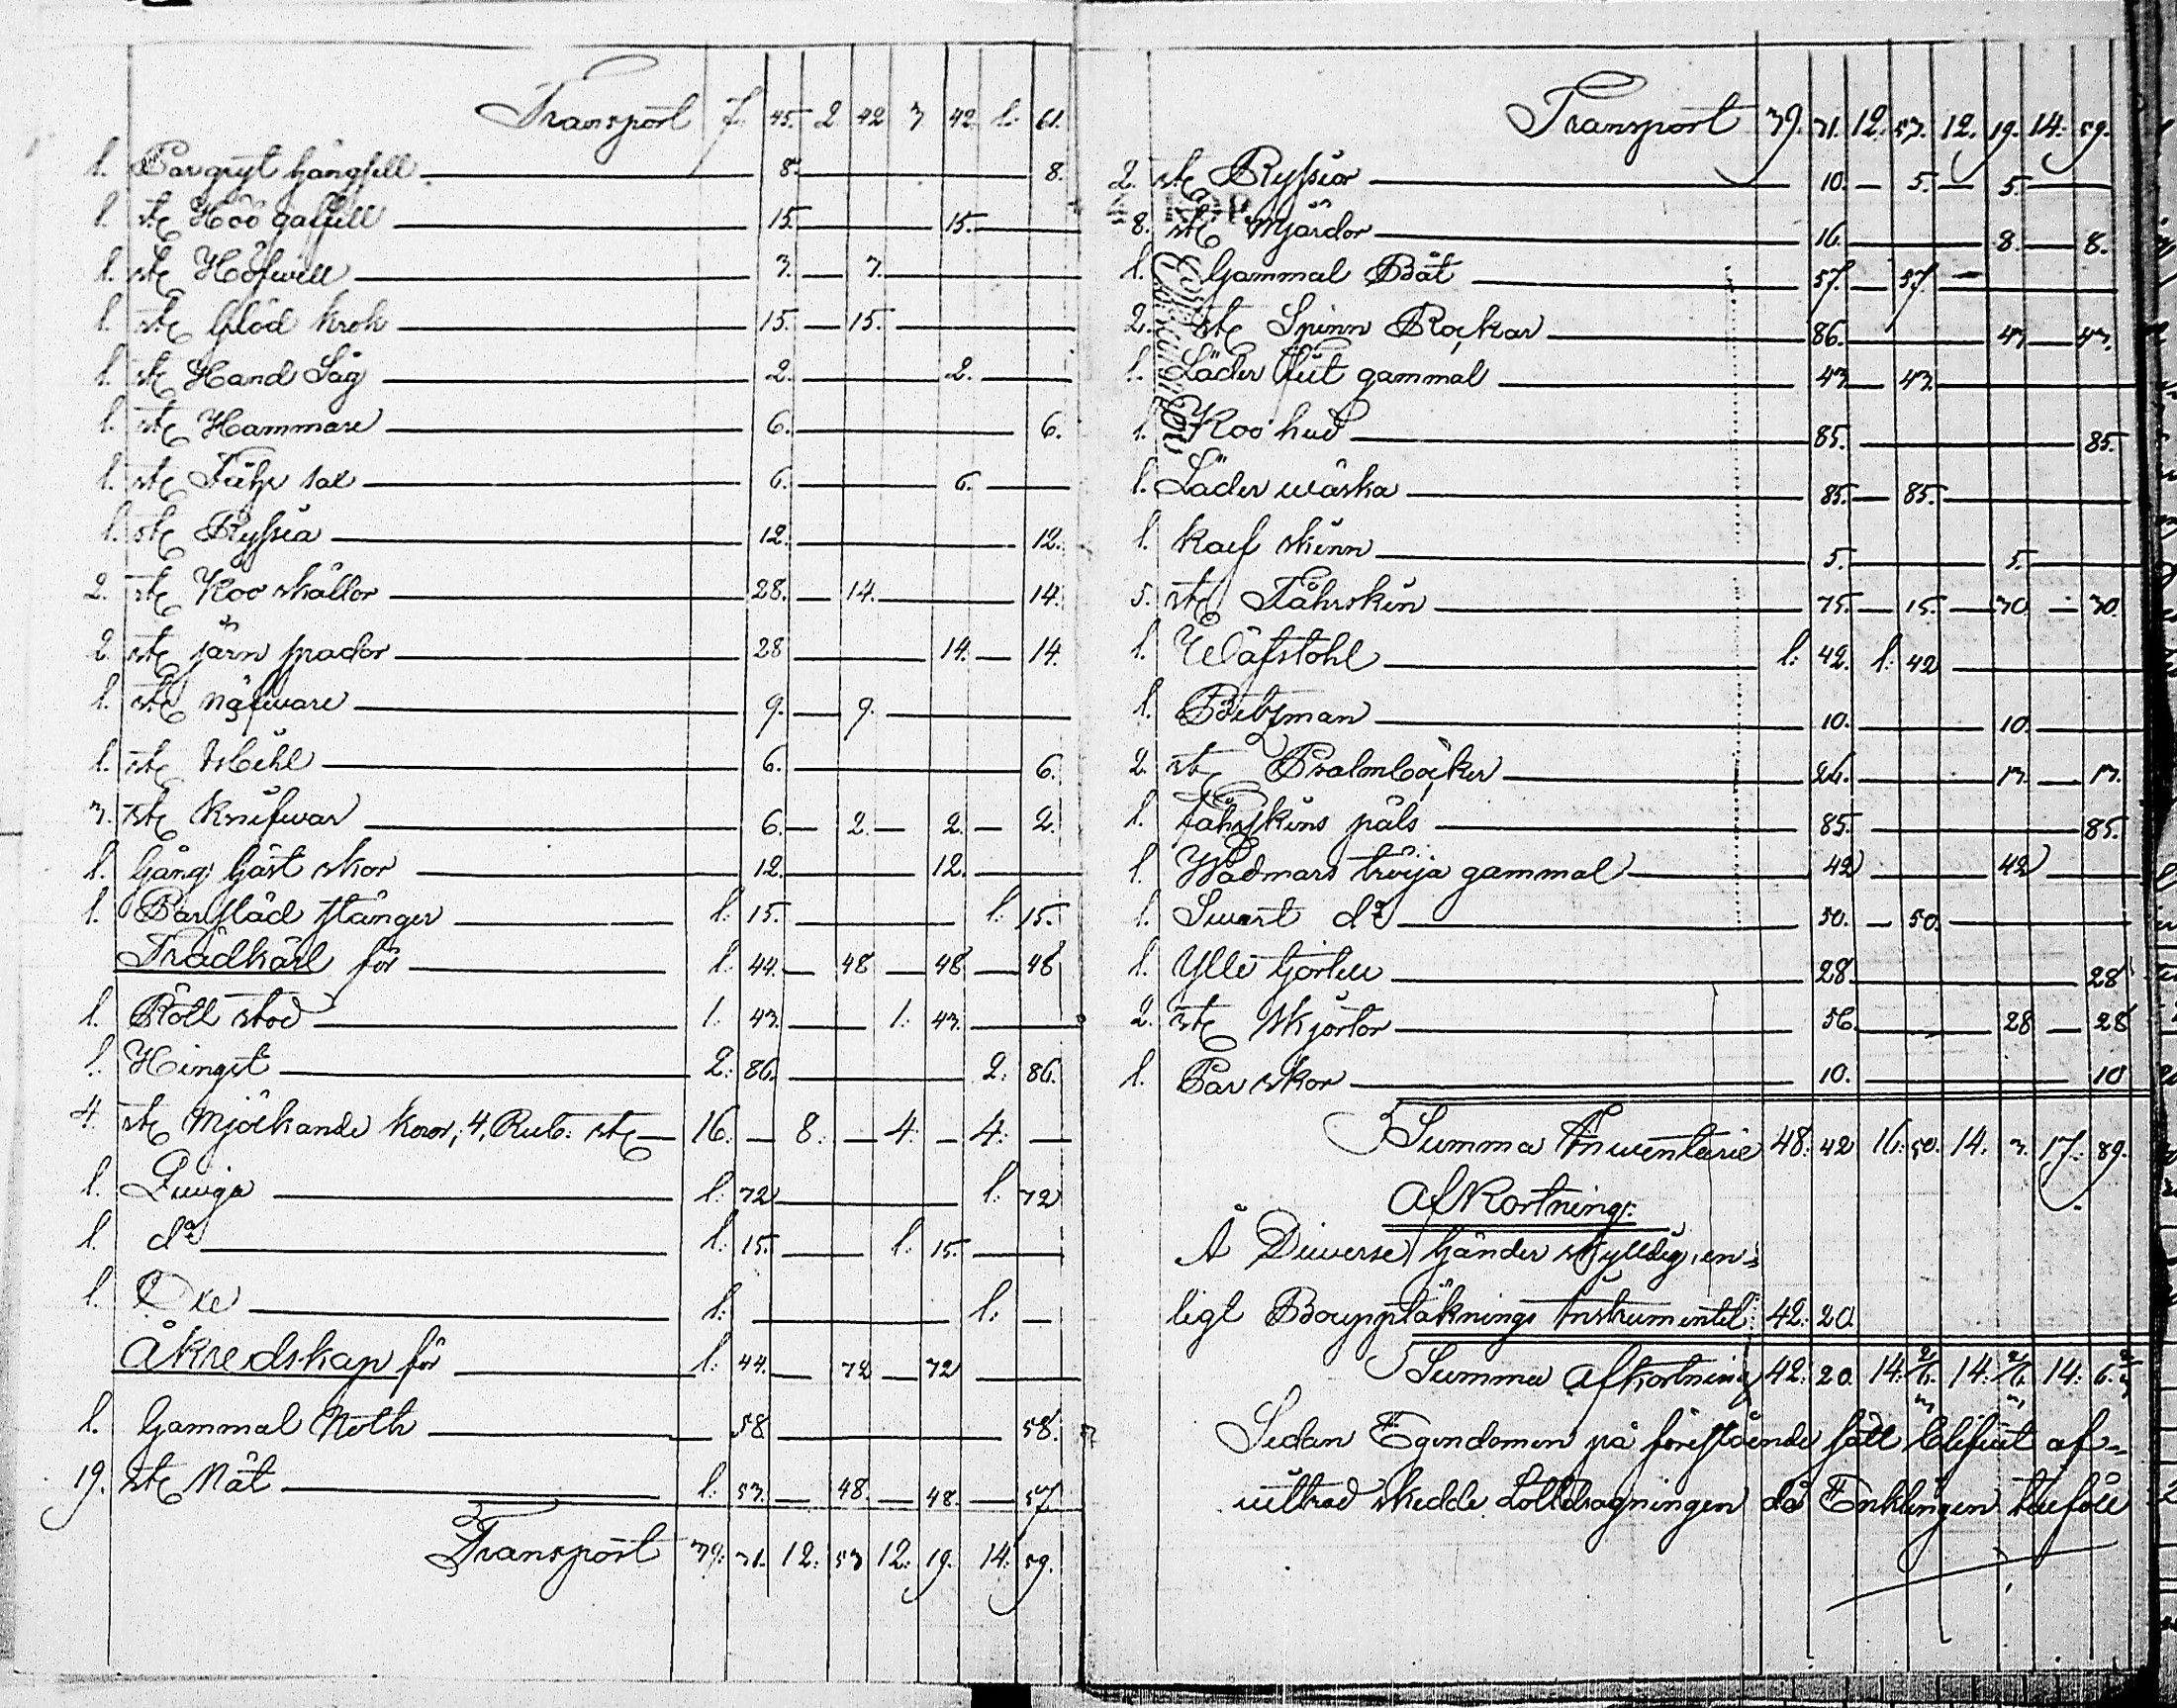 Transport 7. 45. 2 42 3 42. 1. 61.
1. Par gryt hängsell 8. 8.
1. st Höö gaffell 15. 15.
1. st Höfwell 3. 3.
1. st Glöd krok 15. 15.
1. st Hand Såg 2. 2.
1. st Hammare 6. 6.
1. st Fåhr sax 6. 6.
1. st Ryssia 12. 12.
2. st Koo skällor 28. 14. 14.
2. st järn spador 28 14. 14.
1. st näfware 9. 9.
1. st 6. 6.
3. st Knifwar 6. 2. 2. 2.
1. Gång häst skor 12. 12.
1. Par släd stånger 1. 15. 1. 15.
Trädkärl för 1. 44. 48 48 48
1. Röll stod 1. 43. 1. 43.
1. Hingst 2. 86. 2. 86.
4. st Mjölkande koor, 4. Rub. st 16. 8. 4. 4.
1. Quiga 1. 72 1. 72
1. do 1. 15. 1. 15.
1. Oxe 1. 1.
Åkredskap för 1. 44. 72 72
1. Gammal Noth 58 58.
19. st Nät 1. 53. 48. 48. 57
Transport 39. 31. 12. 53 12. 19. 14. 59.
Transport 39. 31. 12. 53. 12. 19. 14. 59.
2. st Ryssior 10. 5. 5.
8. st Mjärdor 16. 8. 8.
1. Gammal Båt 57. 57.
2. st Spinn Rockar 86. 43 43.
1. Läder gammal 43 43.
1. Koo hud 85. 85.
1. Läder wäska 85. 85.
1. Kalf skinn 5. 5.
5. st Fåhrskin 75. 15. 30. 30.
1. Wäfstohl 1. 42. 1. 42
1. Betzman 10. 10.
2. st Psalmböcker 26. 13. 13.
1. Fåhrskins päls 85. 85.
1. Wadmars tröija gammal 42 42
1. Swart do 50. 50.
1. Ylle 28. 28
2. st Skjortor 56 28 28
1. Par skor 10. 10
Summa Inwentarie 48. 42 16. 50. 14. 3. 17. 89.
Afkortning:
Å Diwerse händer skylldig, en=
ligt Bouppteknings Instrumentet 42. 20.
Summa Afkortning 42. 20. 14. 6 2/3 14. 6 2/3 14. 6 2/3
Sedan Egendomen på föreståënde sätt blifwit af=
wittrad skedde Lottdragningen då Enklingen tilföll